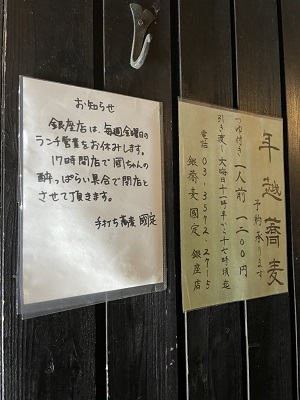 お知らせ
銀座店は、毎週金曜日の
ランチ営業をお休みします。
17時開店で岡ちゃんの
酔っぱらい具合で閉店と
させて頂きます。
手打ち蕎麦 國定
年越蕎麦
予約承ります
つゆ付き 一人前 一二〇〇円
引き渡し 大晦日十一時半〜十七時頃迄
電話 03-3572-2715
銀蕎麦國定 銀座店